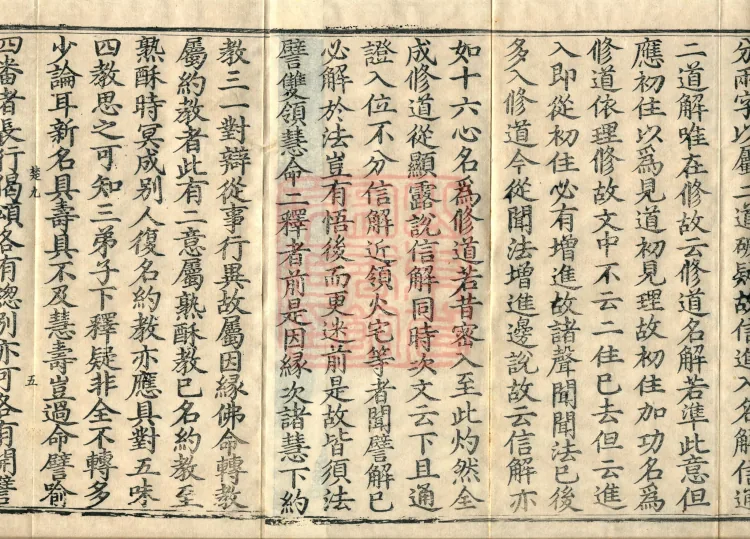 分兩字以屬二道破疑故信進入名解信進
二道解唯在修故云修道名解若準此意但
應初住以為見道初見理故初住加功名為
修道依理修故文中不云二住已去但云進
入即從初住必有增進故諸聲聞聞法已後
多入修道今從聞法增進邊說故云信解亦
如十六心名為修道若昔密入至此灼然全
成修道從顯露說信解同時次文云下且通
證入位不分信解近領火宅等者聞譬解已
必解於法豈有悟後而更迷前是故皆須法
譬雙領慧命二釋者前是因緣次諸慧下約
教三一對辯從事行異故屬因緣佛命轉教
屬約教者此有二意屬熟酥教已名約教至
熟酥時冥成別人復名約教亦應具對五味
四教思之可知三弟子下釋疑非全不轉多
少論耳新名具壽具不及慧壽豈過命譬喻
楚九
五
四番者長行偈頌各有總別亦可各有開譬